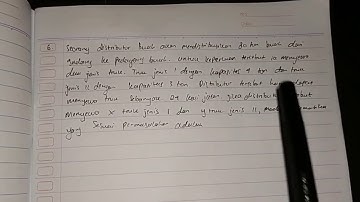 6 Seorang distributor buah akan mendistribusikan 80 ton buah dari
gudang ke pedagang buah. Untuk keperluan tersebut ia menyewa
dua jenis truk. Truk jenis 1 dengan kapasitas 4 ton dan truk
jenis 11 dengan kapasitas 3 ton Distributor tersebut
menyewa truk sebanyak 24 kali jalan jika distributor
menyewa x truk jenis 1 dan y truk jenis 11,
yang sesuai permasalahan adalah